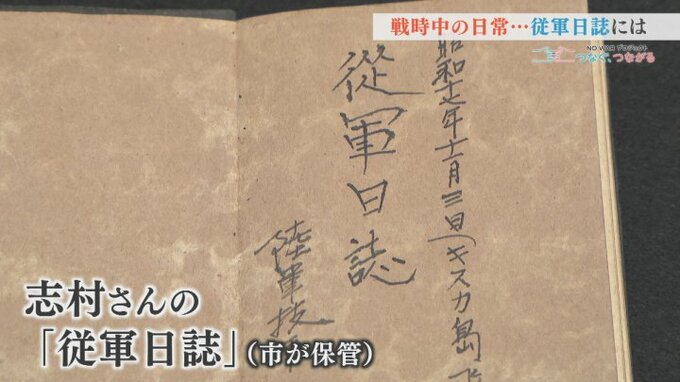 戦時中の日常…従軍日誌には
NO WAR プロジェクト
つなぐ、つながる
昭和十七年十一月三日(キスカ島
従軍日誌
陸軍技
志村さんの
「従軍日誌」(市が保管)